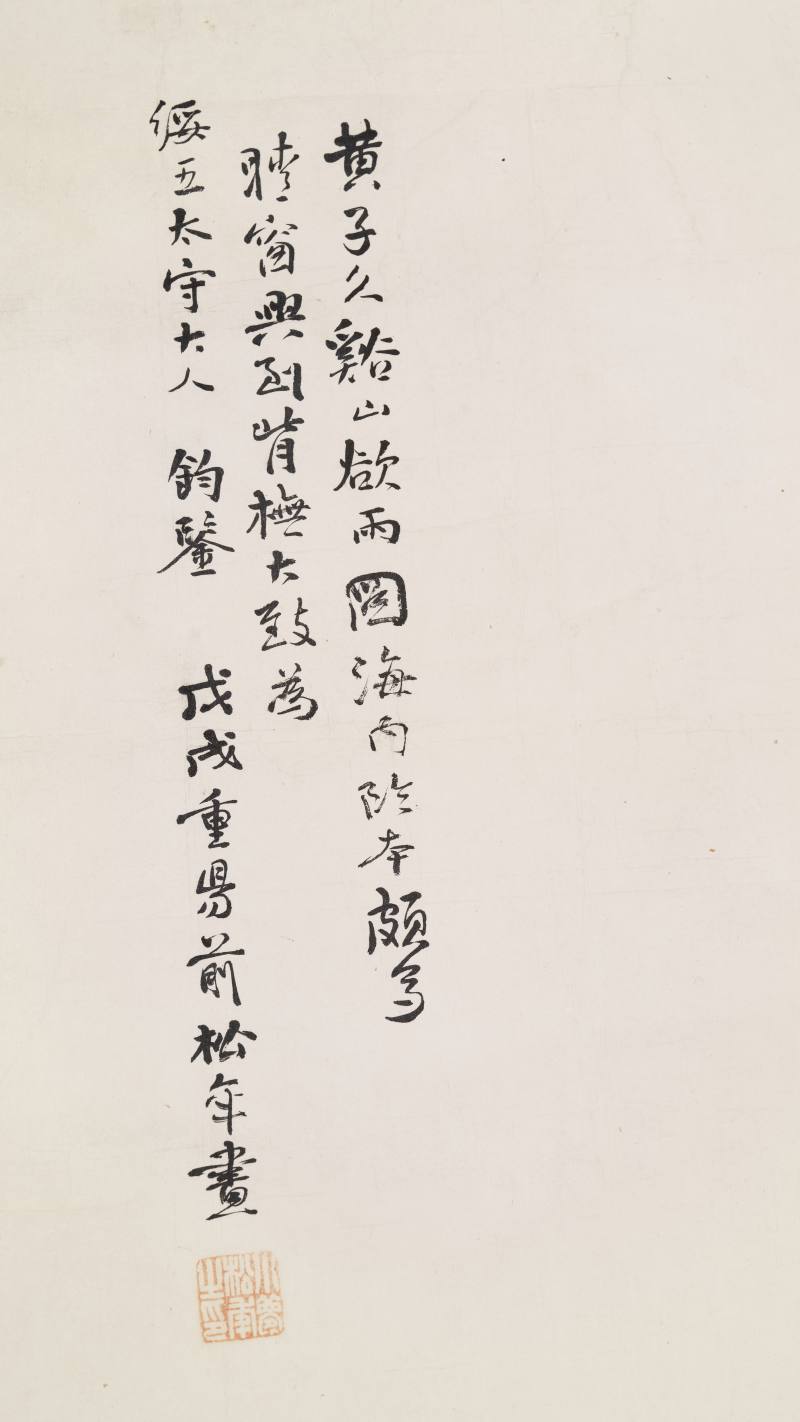 黄子久谿山欲雨圖海内臨本頗多
晴窗興到背橅大致爲
綏五太守大人 鈞鑒 戊戌重昜前松年畫
小夢松年之印